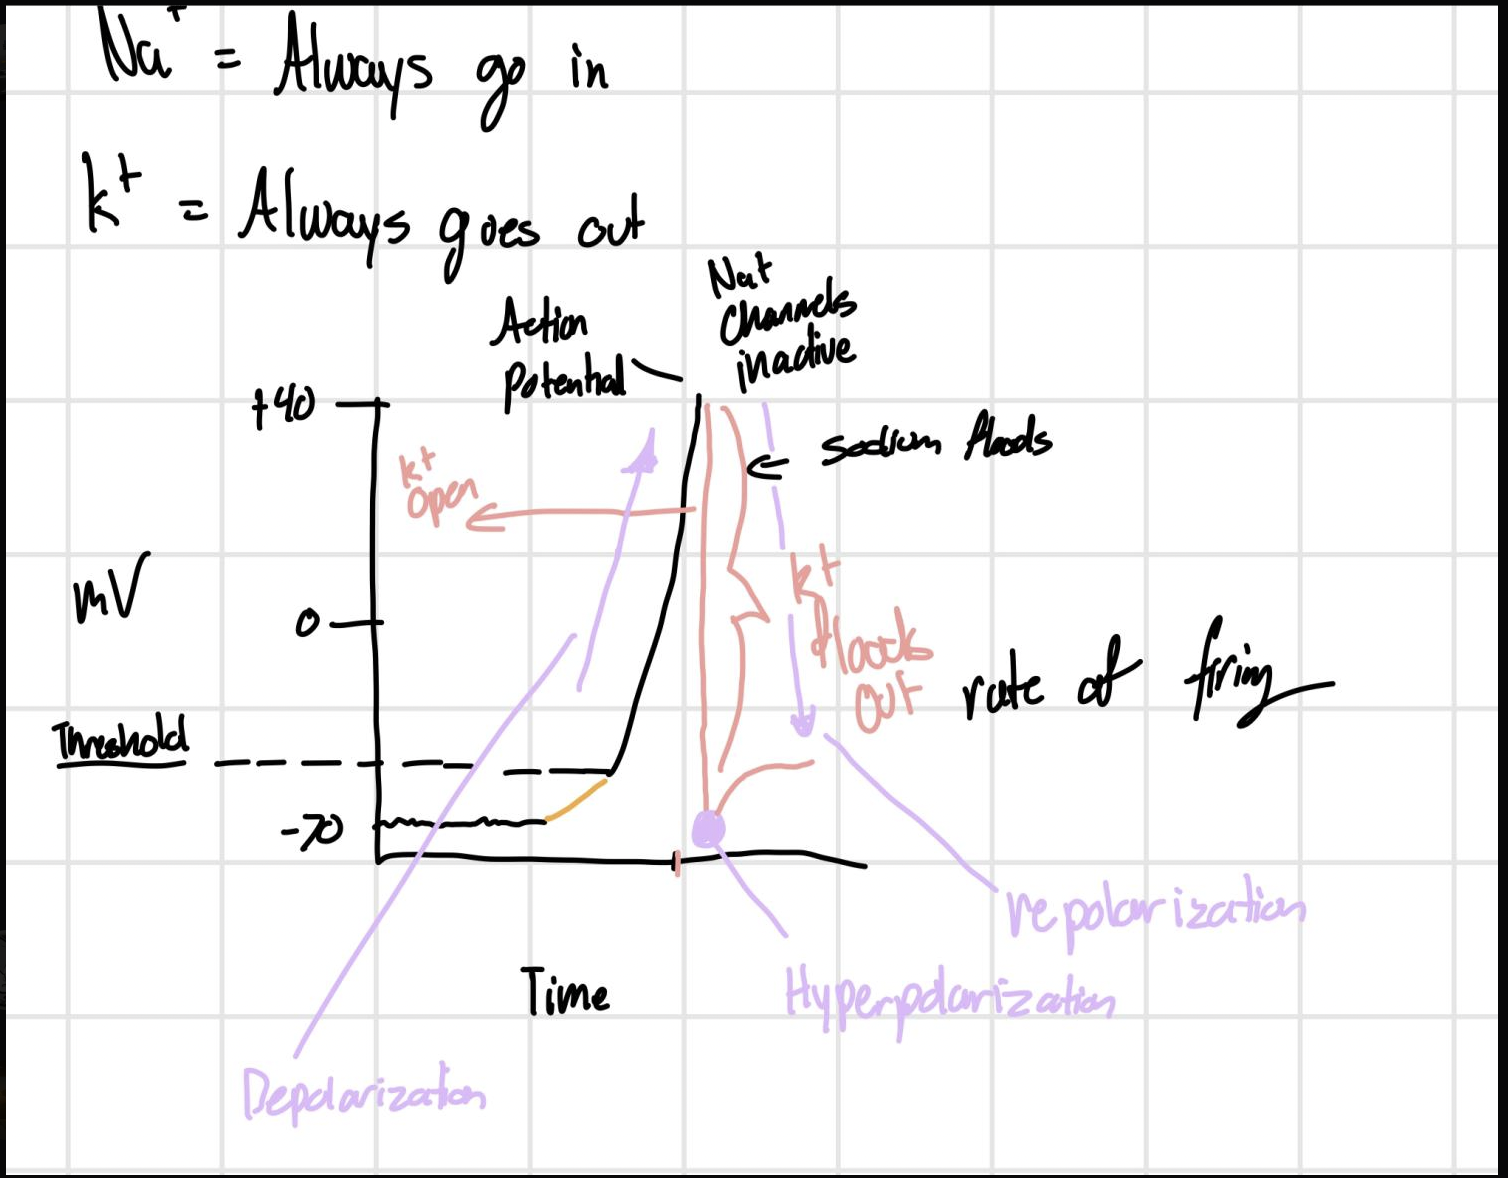 Na+ = Always go in
k+ = Always goes out
Action
Potential
Na+
Channels
inactive
+40
sodium floods
k+
open
mV
0
k+
floods
out
rate of firing
Threshold
-70
repolarization
Time
Hyperpolarization
Depolarization